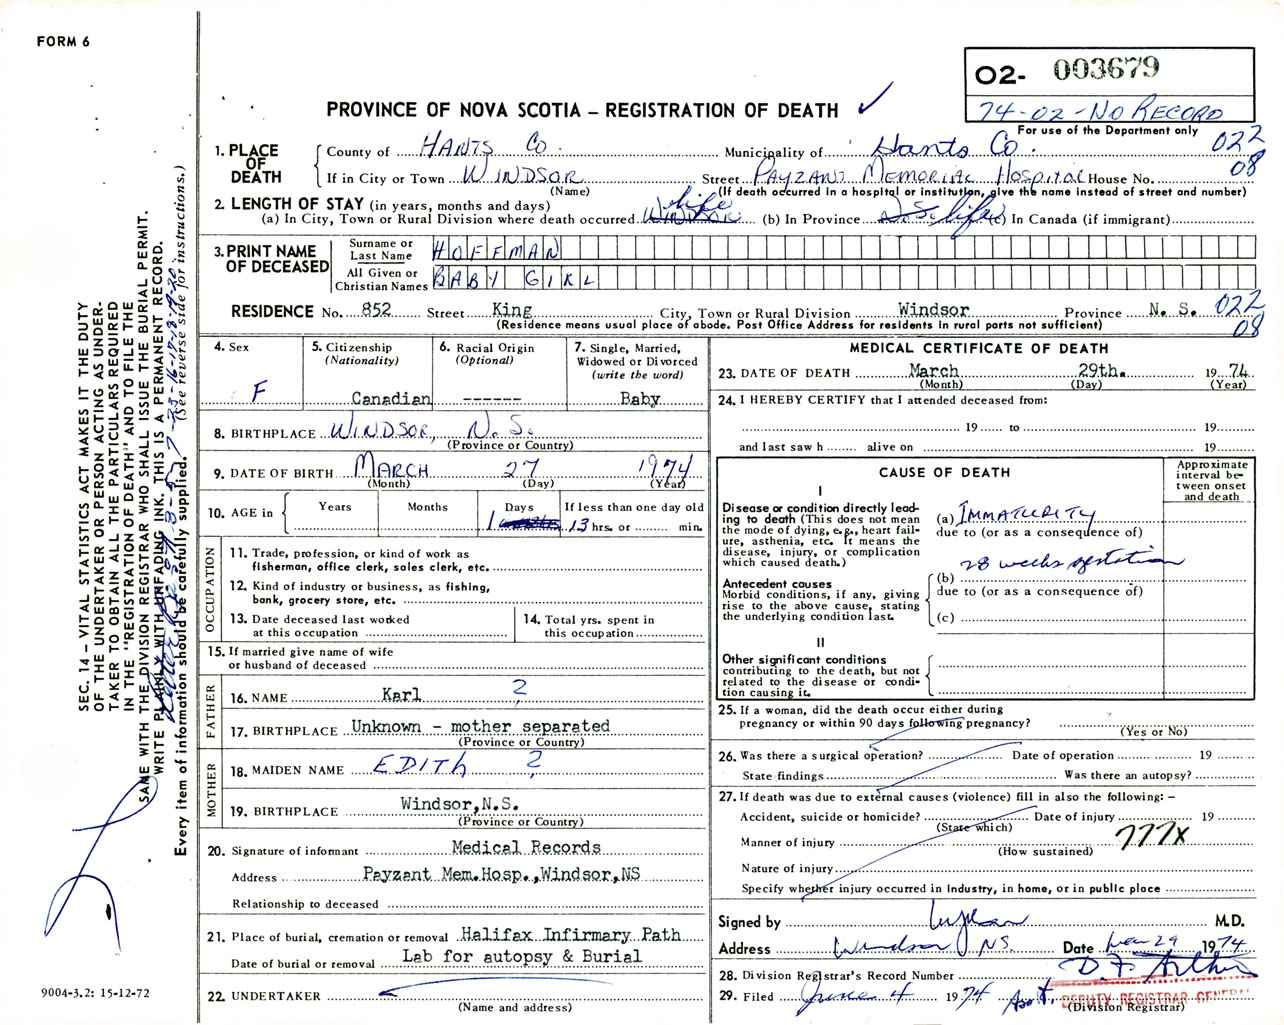 FORM 6
O2- 003679
74-02-NO RECORD
For use of the Department only
PROVINCE OF NOVA SCOTIA – REGISTRATION OF DEATH ✓
1. PLACE OF DEATH
County of HANTS Co. Municipality of Hants Co. 022
If in City or Town WINDSOR Street PAYZANT MEMORIAL HOSPITAL House No. 08
(Name) (If death occurred in a hospital or institution, give the name instead of street and number)
2. LENGTH OF STAY (in years, months and days)
(a) In City, Town or Rural Division where death occurred WINDSOR life (b) In Province N.S. life (c) In Canada (if immigrant)
3. PRINT NAME OF DECEASED
Surname or Last Name HOFFMAN
All Given or Christian Names BABY GIRL
RESIDENCE No. 852 Street King City, Town or Rural Division Windsor Province N. S. 022
(Residence means usual place of abode. Post Office Address for residents in rural parts not sufficient) 08
4. Sex F
5. Citizenship (Nationality) Canadian
6. Racial Origin (Optional) ------
7. Single, Married, Widowed or Divorced (write the word) Baby
8. BIRTHPLACE WINDSOR, N.S.
(Province or Country)
9. DATE OF BIRTH MARCH 27 1974
(Month) (Day) (Year)
10. AGE in Years Months Days If less than one day old
1 13 hrs. or min.
OCCUPATION
11. Trade, profession, or kind of work as fisherman, office clerk, sales clerk, etc.
12. Kind of industry or business, as fishing, bank, grocery store, etc.
13. Date deceased last worked at this occupation
14. Total yrs. spent in this occupation
15. If married give name of wife or husband of deceased
FATHER
16. NAME Karl ?
17. BIRTHPLACE Unknown - mother separated
(Province or Country)
MOTHER
18. MAIDEN NAME EDITH ?
19. BIRTHPLACE Windsor,N.S.
(Province or Country)
20. Signature of informant Medical Records
Address Payzant Mem.Hosp.,Windsor,NS
Relationship to deceased
21. Place of burial, cremation or removal Halifax Infirmary Path
Date of burial or removal Lab for autopsy & Burial
22. UNDERTAKER
(Name and address)
MEDICAL CERTIFICATE OF DEATH
23. DATE OF DEATH March 29th. 1974
(Month) (Day) (Year)
24. I HEREBY CERTIFY that I attended deceased from:
19 to 19
and last saw h alive on 19
CAUSE OF DEATH
Approximate interval between onset and death
I
Disease or condition directly leading to death (This does not mean the mode of dying, e.g., heart failure, asthenia, etc. It means the disease, injury, or complication which caused death.)
(a) IMMATURITY
due to (or as a consequence of)
28 weeks gestation
Antecedent causes
Morbid conditions, if any, giving rise to the above cause, stating the underlying condition last.
(b)
due to (or as a consequence of)
(c)
II
Other significant conditions contributing to the death, but not related to the disease or condition causing it.
25. If a woman, did the death occur either during pregnancy or within 90 days following pregnancy?
(Yes or No)
26. Was there a surgical operation? Date of operation 19
State findings Was there an autopsy?
27. If death was due to external causes (violence) fill in also the following: –
Accident, suicide or homicide? Date of injury 19
(State which)
Manner of injury 777x
(How sustained)
Nature of injury
Specify whether injury occurred in industry, in home, or in public place
Signed by M.D.
Address Windsor NS. Date 29 1974
28. Division Registrar's Record Number
29. Filed June 4 1974
DEPUTY REGISTRAR GENERAL
(Division Registrar)
SEC. 14 – VITAL STATISTICS ACT MAKES IT THE DUTY
OF THE UNDERTAKER OR PERSON ACTING AS UNDER-
TAKER TO OBTAIN ALL THE PARTICULARS REQUIRED
IN THE "REGISTRATION OF DEATH" AND TO FILE THE
SAME WITH THE DIVISION REGISTRAR WHO SHALL ISSUE THE BURIAL PERMIT.
WRITE PLAINLY WITH UNFADING INK. THIS IS A PERMANENT RECORD.
Every item of information should be carefully supplied. (See reverse side for instructions.)
9004-3.2: 15-12-72